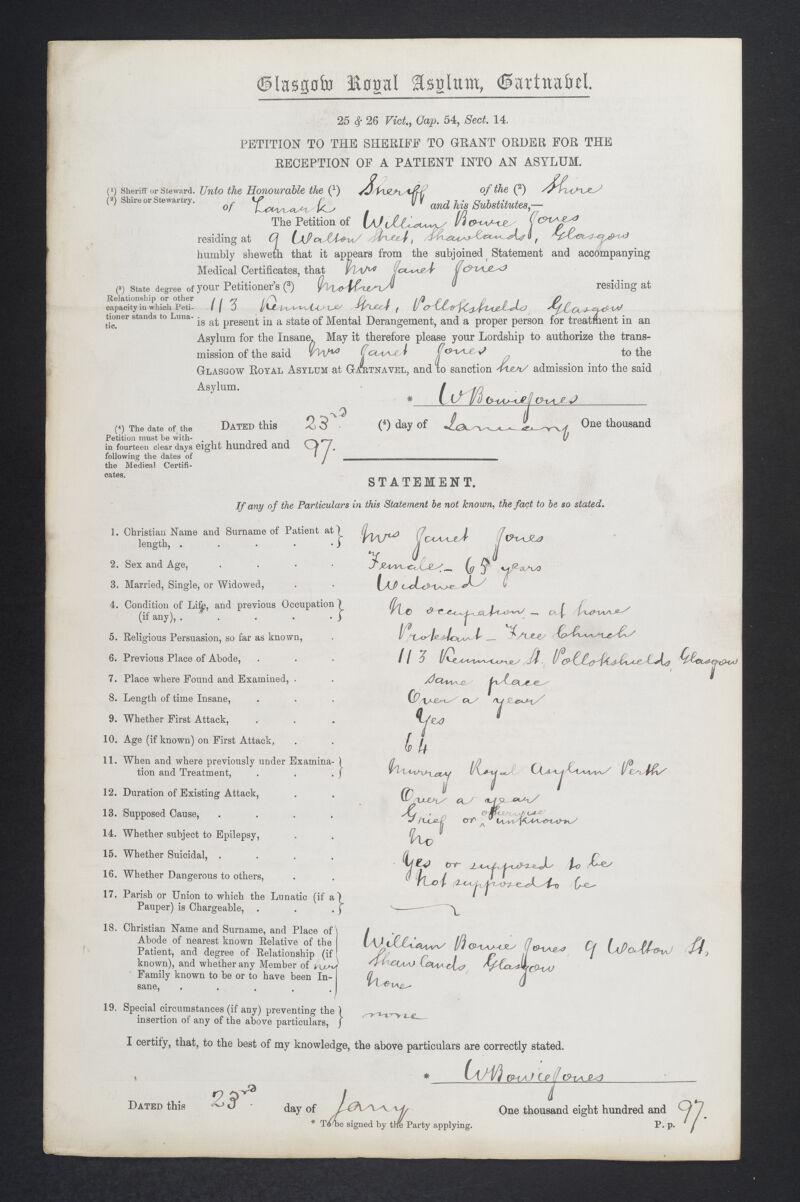 Glasgow Royal Asylum, Gartnabel.
25 & 26 Vict., Cap. 54, Sect. 14.
PETITION TO THE SHERIFF TO GRANT ORDER FOR THE
RECEPTION OF A PATIENT INTO AN ASYLUM.
(1) Sheriff or Steward.
(2) Shire or Stewartry.
Unto the Honourable the (1) Sheriff of the (2) Shire
of Lanark and his Substitutes,—
The Petition of William Bowie Jones
residing at 9 Walton Street, Shawlands, Glasgow
humbly sheweth that it appears from the subjoined Statement and accompanying
Medical Certificates, that Mrs Janet Jones
(3) State degree of
Relationship or other
capacity in which Peti-
tioner stands to Luna-
tic.
your Petitioner's (3) Mother residing at
113 Kenmure Street, Pollokshields, Glasgow
is at present in a state of Mental Derangement, and a proper person for treatment in an
Asylum for the Insane. May it therefore please your Lordship to authorize the trans-
mission of the said Mrs Janet Jones to the
GLASGOW ROYAL ASYLUM at GARTNAVEL, and to sanction her admission into the said
Asylum.
* WBowieJones
(4) The date of the
Petition must be with-
in fourteen clear days
following the dates of
the Medical Certifi-
cates.
DATED this 23rd. (4) day of January One thousand
eight hundred and 97.
STATEMENT.
If any of the Particulars in this Statement be not known, the fact to be so stated.
1. Christian Name and Surname of Patient at
length, . . . . . Mrs Janet Jones
2. Sex and Age, . . . . Female – 65 years
3. Married, Single, or Widowed, . . Widowed
4. Condition of Life, and previous Occupation
(if any), . . . . . No occupation – at home
5. Religious Persuasion, so far as known, . Protestant – Free Church
6. Previous Place of Abode, . . . 113 Kenmure St, Pollokshields, Glasgow
7. Place where Found and Examined, . . same place
8. Length of time Insane, . . . Over a year
9. Whether First Attack, . . . Yes
10. Age (if known) on First Attack, . . 64
11. When and where previously under Examina-
tion and Treatment, . . . Murray Royal Asylum Perth
12. Duration of Existing Attack, . . Over a year
13. Supposed Cause, . . . . Grief or otherwise unknown
14. Whether subject to Epilepsy, . . No
15. Whether Suicidal, . . . . Yes or supposed to be
16. Whether Dangerous to others, . . Not supposed to be
17. Parish or Union to which the Lunatic (if a
Pauper) is Chargeable, . . .
18. Christian Name and Surname, and Place of
Abode of nearest known Relative of the
Patient, and degree of Relationship (if
known), and whether any Member of her
Family known to be or to have been In-
sane, . . . . .
William Bowie Jones, 9 Walton St,
Shawlands, Glasgow
None
19. Special circumstances (if any) preventing the
insertion of any of the above particulars, none
I certify, that, to the best of my knowledge, the above particulars are correctly stated.
* WBowieJones
DATED this 23rd. day of Jany One thousand eight hundred and 97.
* To be signed by the Party applying.
P. p.